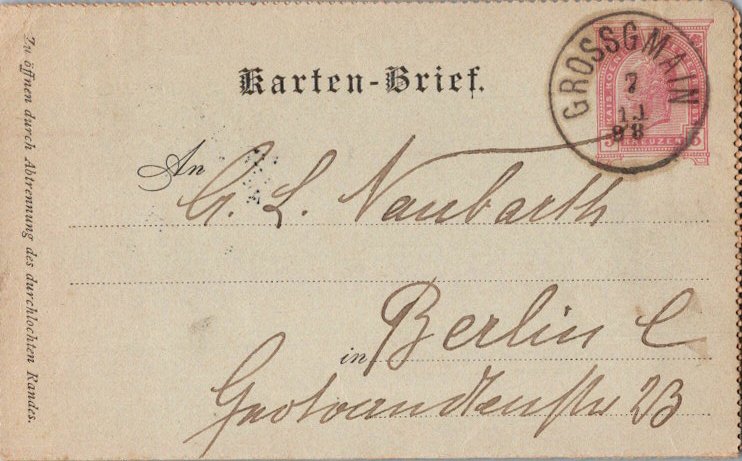 Karten-Brief.
GROSSGMAIN
7
11
98
KAIS. KOEN.
5 KREUZER 5
An
G. L. Naubarth
in Berlin C
23
Zu öffnen durch Abtrennung des durchlochten Randes.